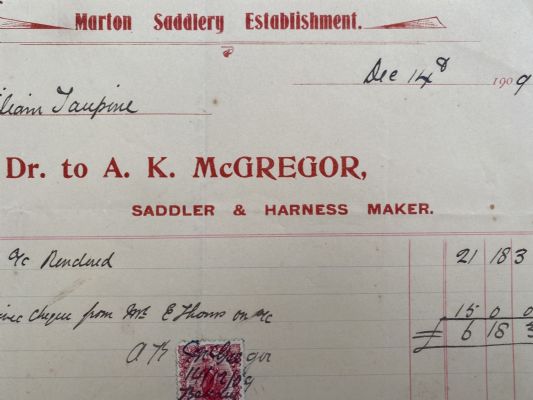 Marton Saddlery Establishment.
Dec 14 1909
Dr. to A. K. McGREGOR,
SADDLER & HARNESS MAKER.
a/c Rendered 21 18 3
cheque from Mr E Thoms on a/c 15 0 0
6 18 3
A K McGregor
14/12/09